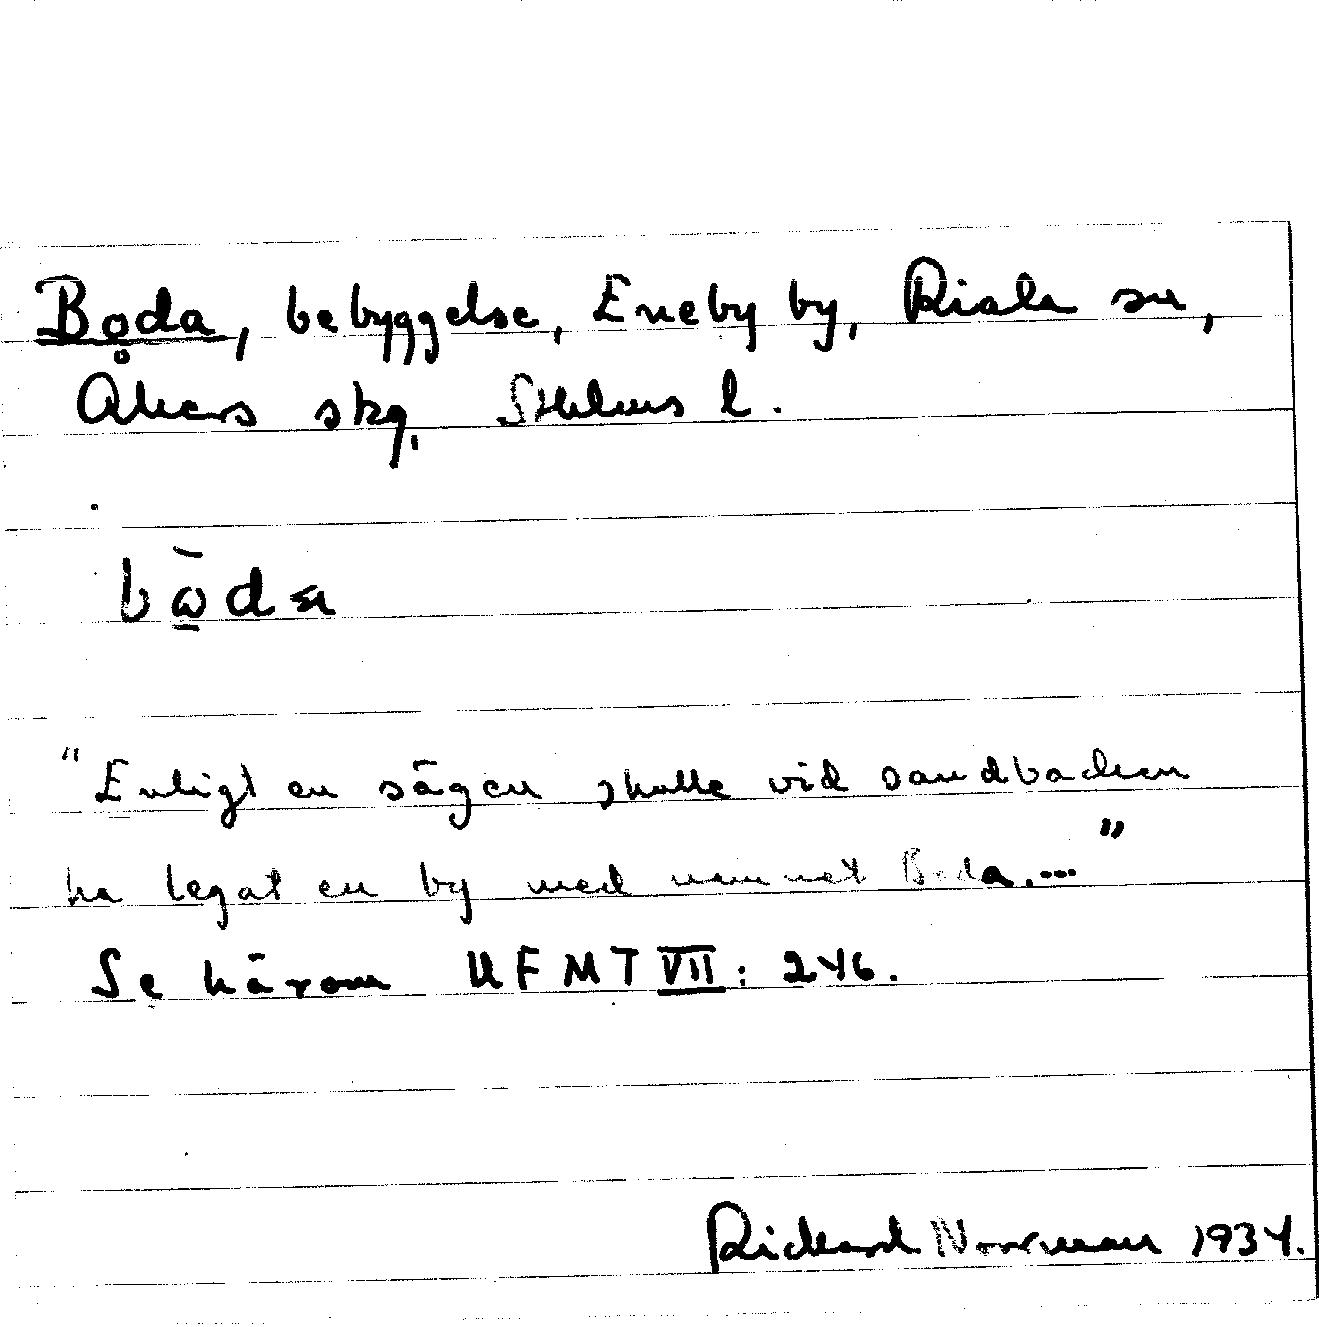 Boda, bebyggelse, Eneby by, Riala sn,
Åkers skg. Sthlms l.
"Enligt en sägen skulle vid sandbacken
ha legat en by med namnet Boda...."
Se härom UFMT VII: 246.
Rickard Norrman 1934.